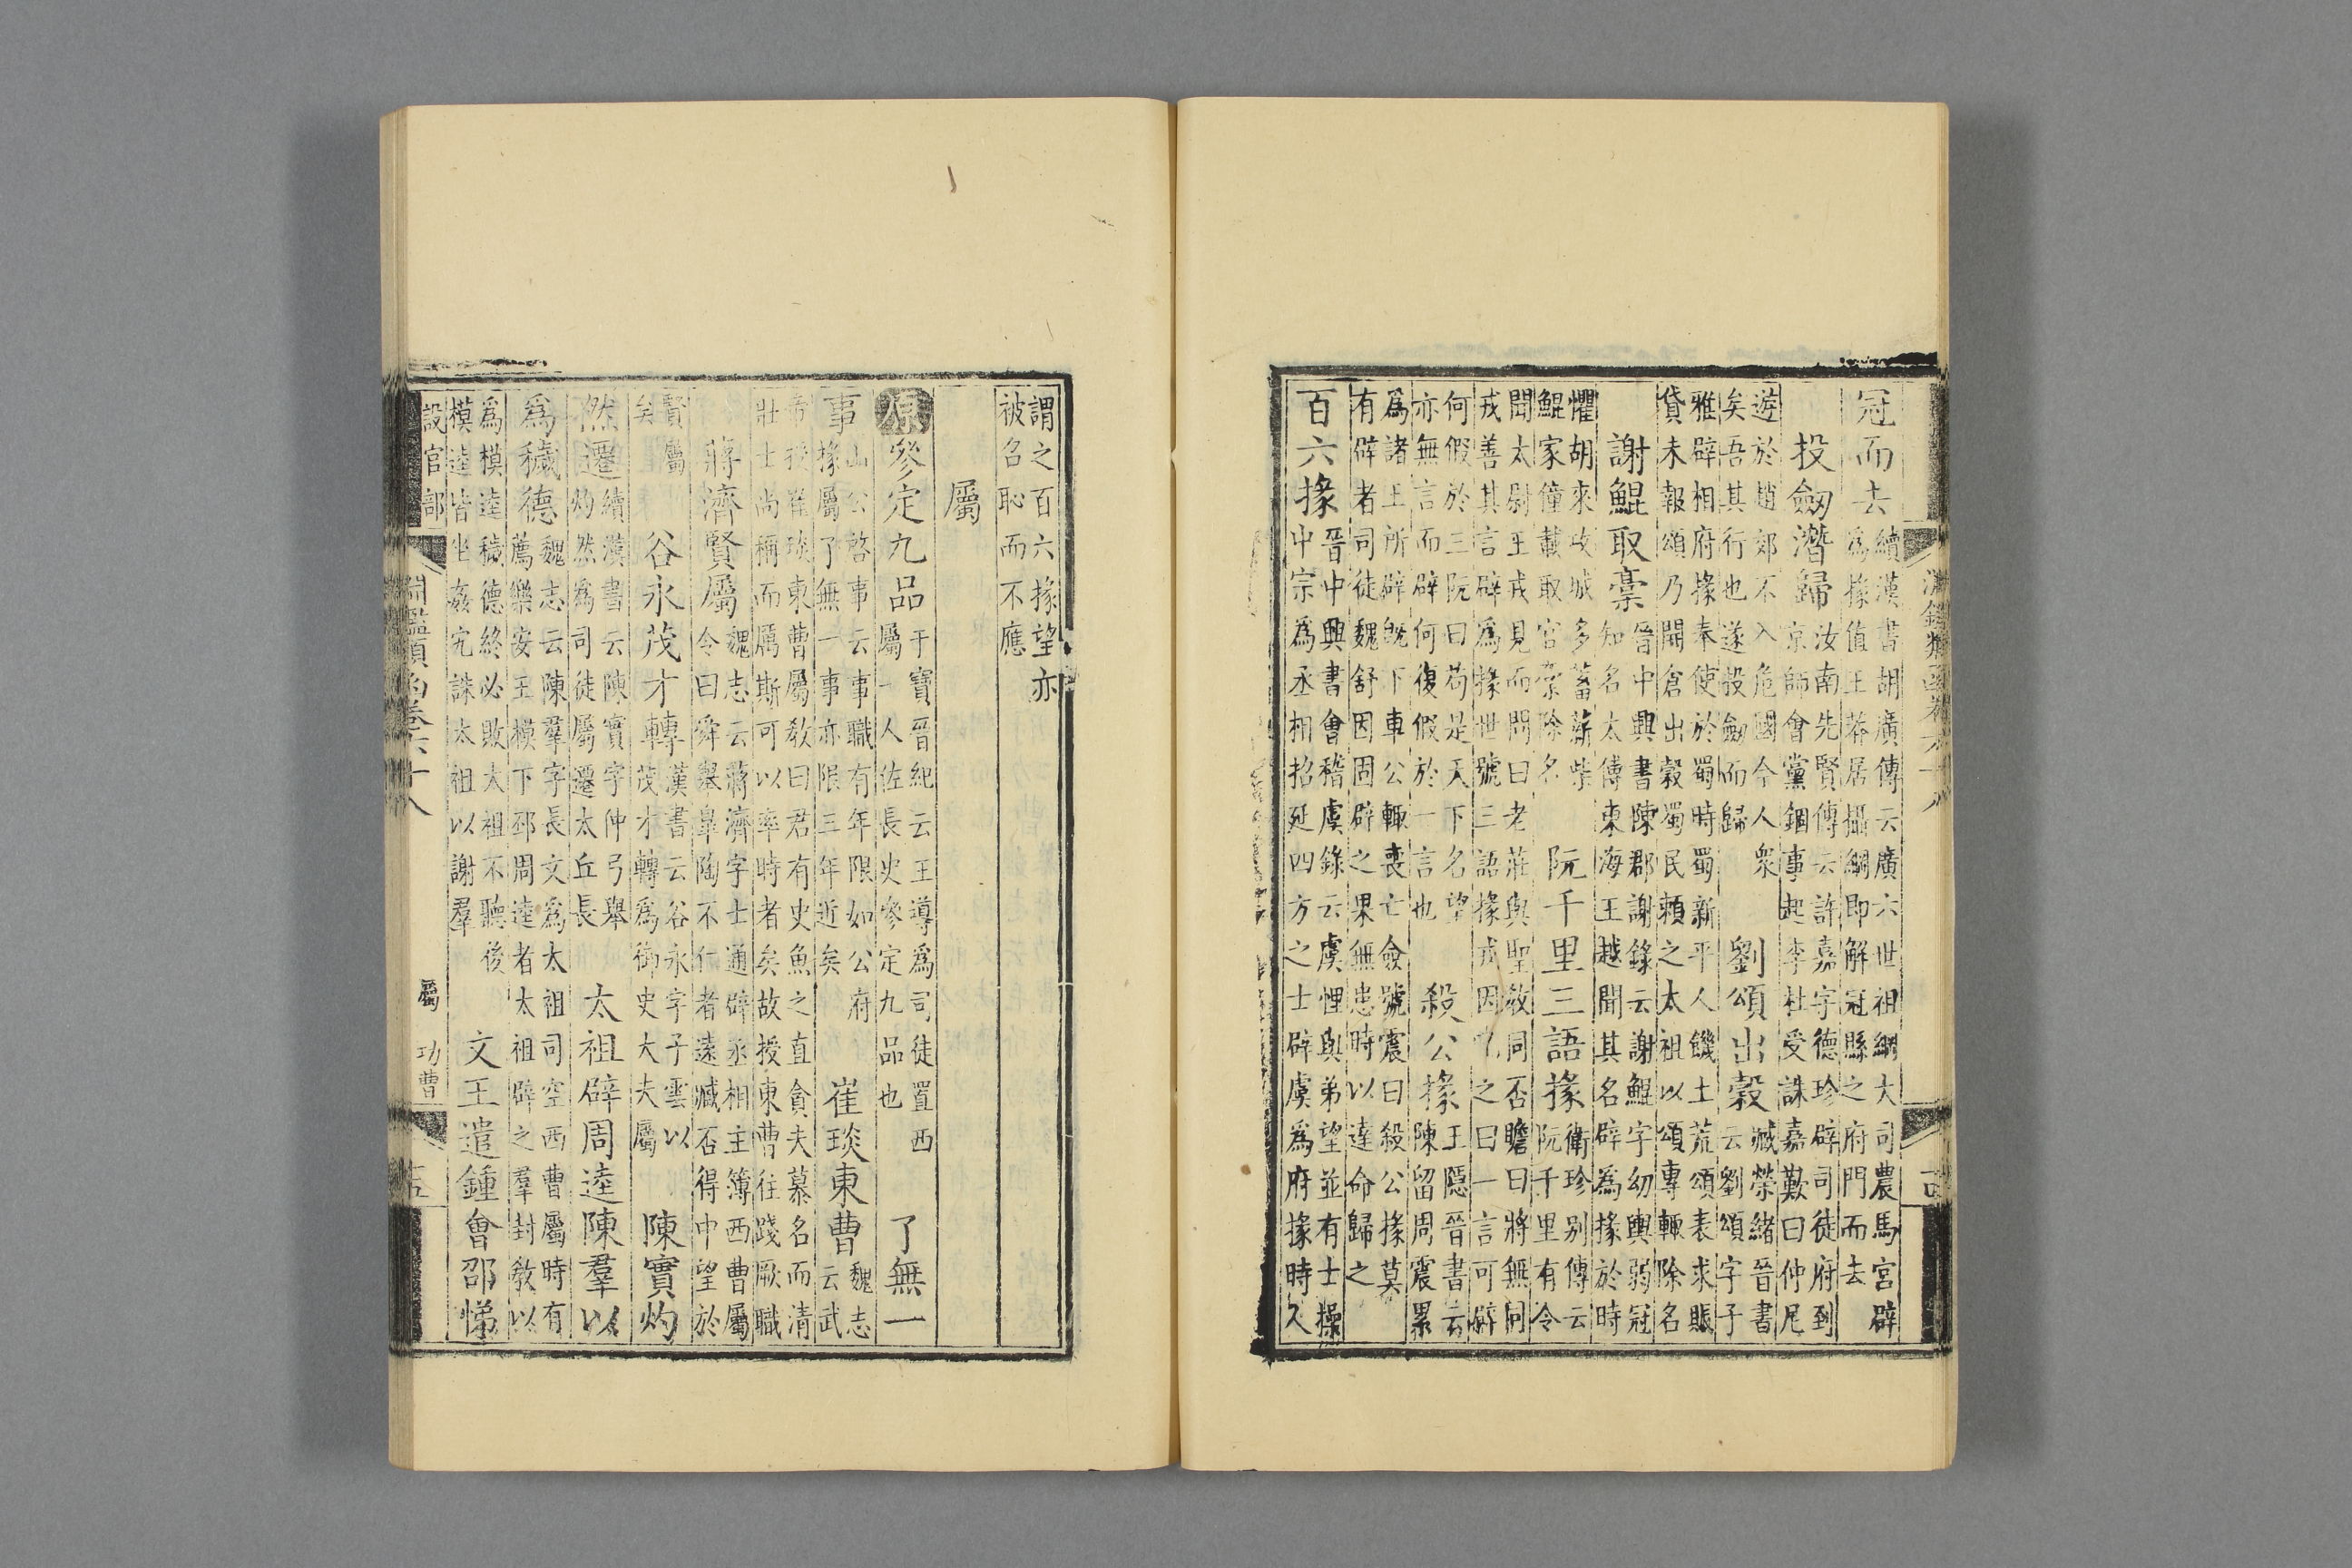 淵鑑類函卷六十八
冠而去續漢書胡廣傳云廣六世祖綱大司農馬宮辟
爲掾值王莽居攝綱即解冠縣之府門而去
投劒潛歸汝南先賢傳云許嘉字德珍辟司徒府到
京師會黨錮事起李杜受誅嘉歎曰仲尼
遊於趙郊不入危國今人衆
矣吾其行也遂投劒而歸
劉頌出穀臧榮緒晉書
云劉頌字子
雅辟相府掾奉使於蜀時蜀新平人饑土荒頌表求賑
貸未報頌乃開倉出穀蜀民賴之太祖以頌專輒除名
謝鯤取稾晉中興書陳郡謝錄云謝鯤字幼輿弱冠
知名太傅東海王越聞其名辟爲掾於時
懼胡來攻城多蓄薪柴
鯤家僮載取官稾除名
阮千里三語掾衛珍别傳云
阮千里有令
聞太尉王戎見而問曰老莊與聖敎同否瞻曰將無同
戎善其言辟爲掾世號三語掾戎因之曰一言可辟
何假於三阮曰苟是天下名望
亦無言而辟何復假於一言也
殺公掾王隱晉書云
陳留周震累
爲諸王所辟旣下車公輒喪亡僉號震曰殺公掾莫
有辟者司徒魏舒因固辟之果無患時以達命歸之
百六掾晉中興書會稽虞錄云虞悝與弟望並有士操
中宗爲丞相招延四方之士辟虞爲府掾時久
謂之百六掾望亦
被名恥而不應
屬
原參定九品干寶晉紀云王導爲司徒置西
屬一人佐長史參定九品也
了無一
事山公啓事云事職有年限如公府
掾屬了無一事事亦限三年近矣
崔琰東曹魏志
云武
帝授崔琰東曹屬敎曰君有史魚之直貪夫慕名而清
壯士尚稱而厲斯可以率時者矣故授東曹往踐厥職
蔣濟賢屬魏志云蔣濟字士通辟丞相主簿西曹屬
令曰舜舉臯陶不仁者遠臧否得中望於
賢屬
矣
谷永茂才轉漢書云谷永字子雲以
茂才轉爲御史大夫屬
陳實灼
然遷續漢書云陳實字仲弓舉
灼然爲司徒屬遷太丘長
太祖辟周逵陳羣以
爲穢德魏志云陳羣字長文爲太祖司空西曹屬時有
薦樂安王模下邳周逵者太祖辟之羣封敎以
爲模逵穢德終必敗大祖不聽後
模逵皆坐姦宄誅太祖以謝羣
文王遣鍾會邵悌
設官部
淵鑑類函卷六十八
屬 功曹
十五